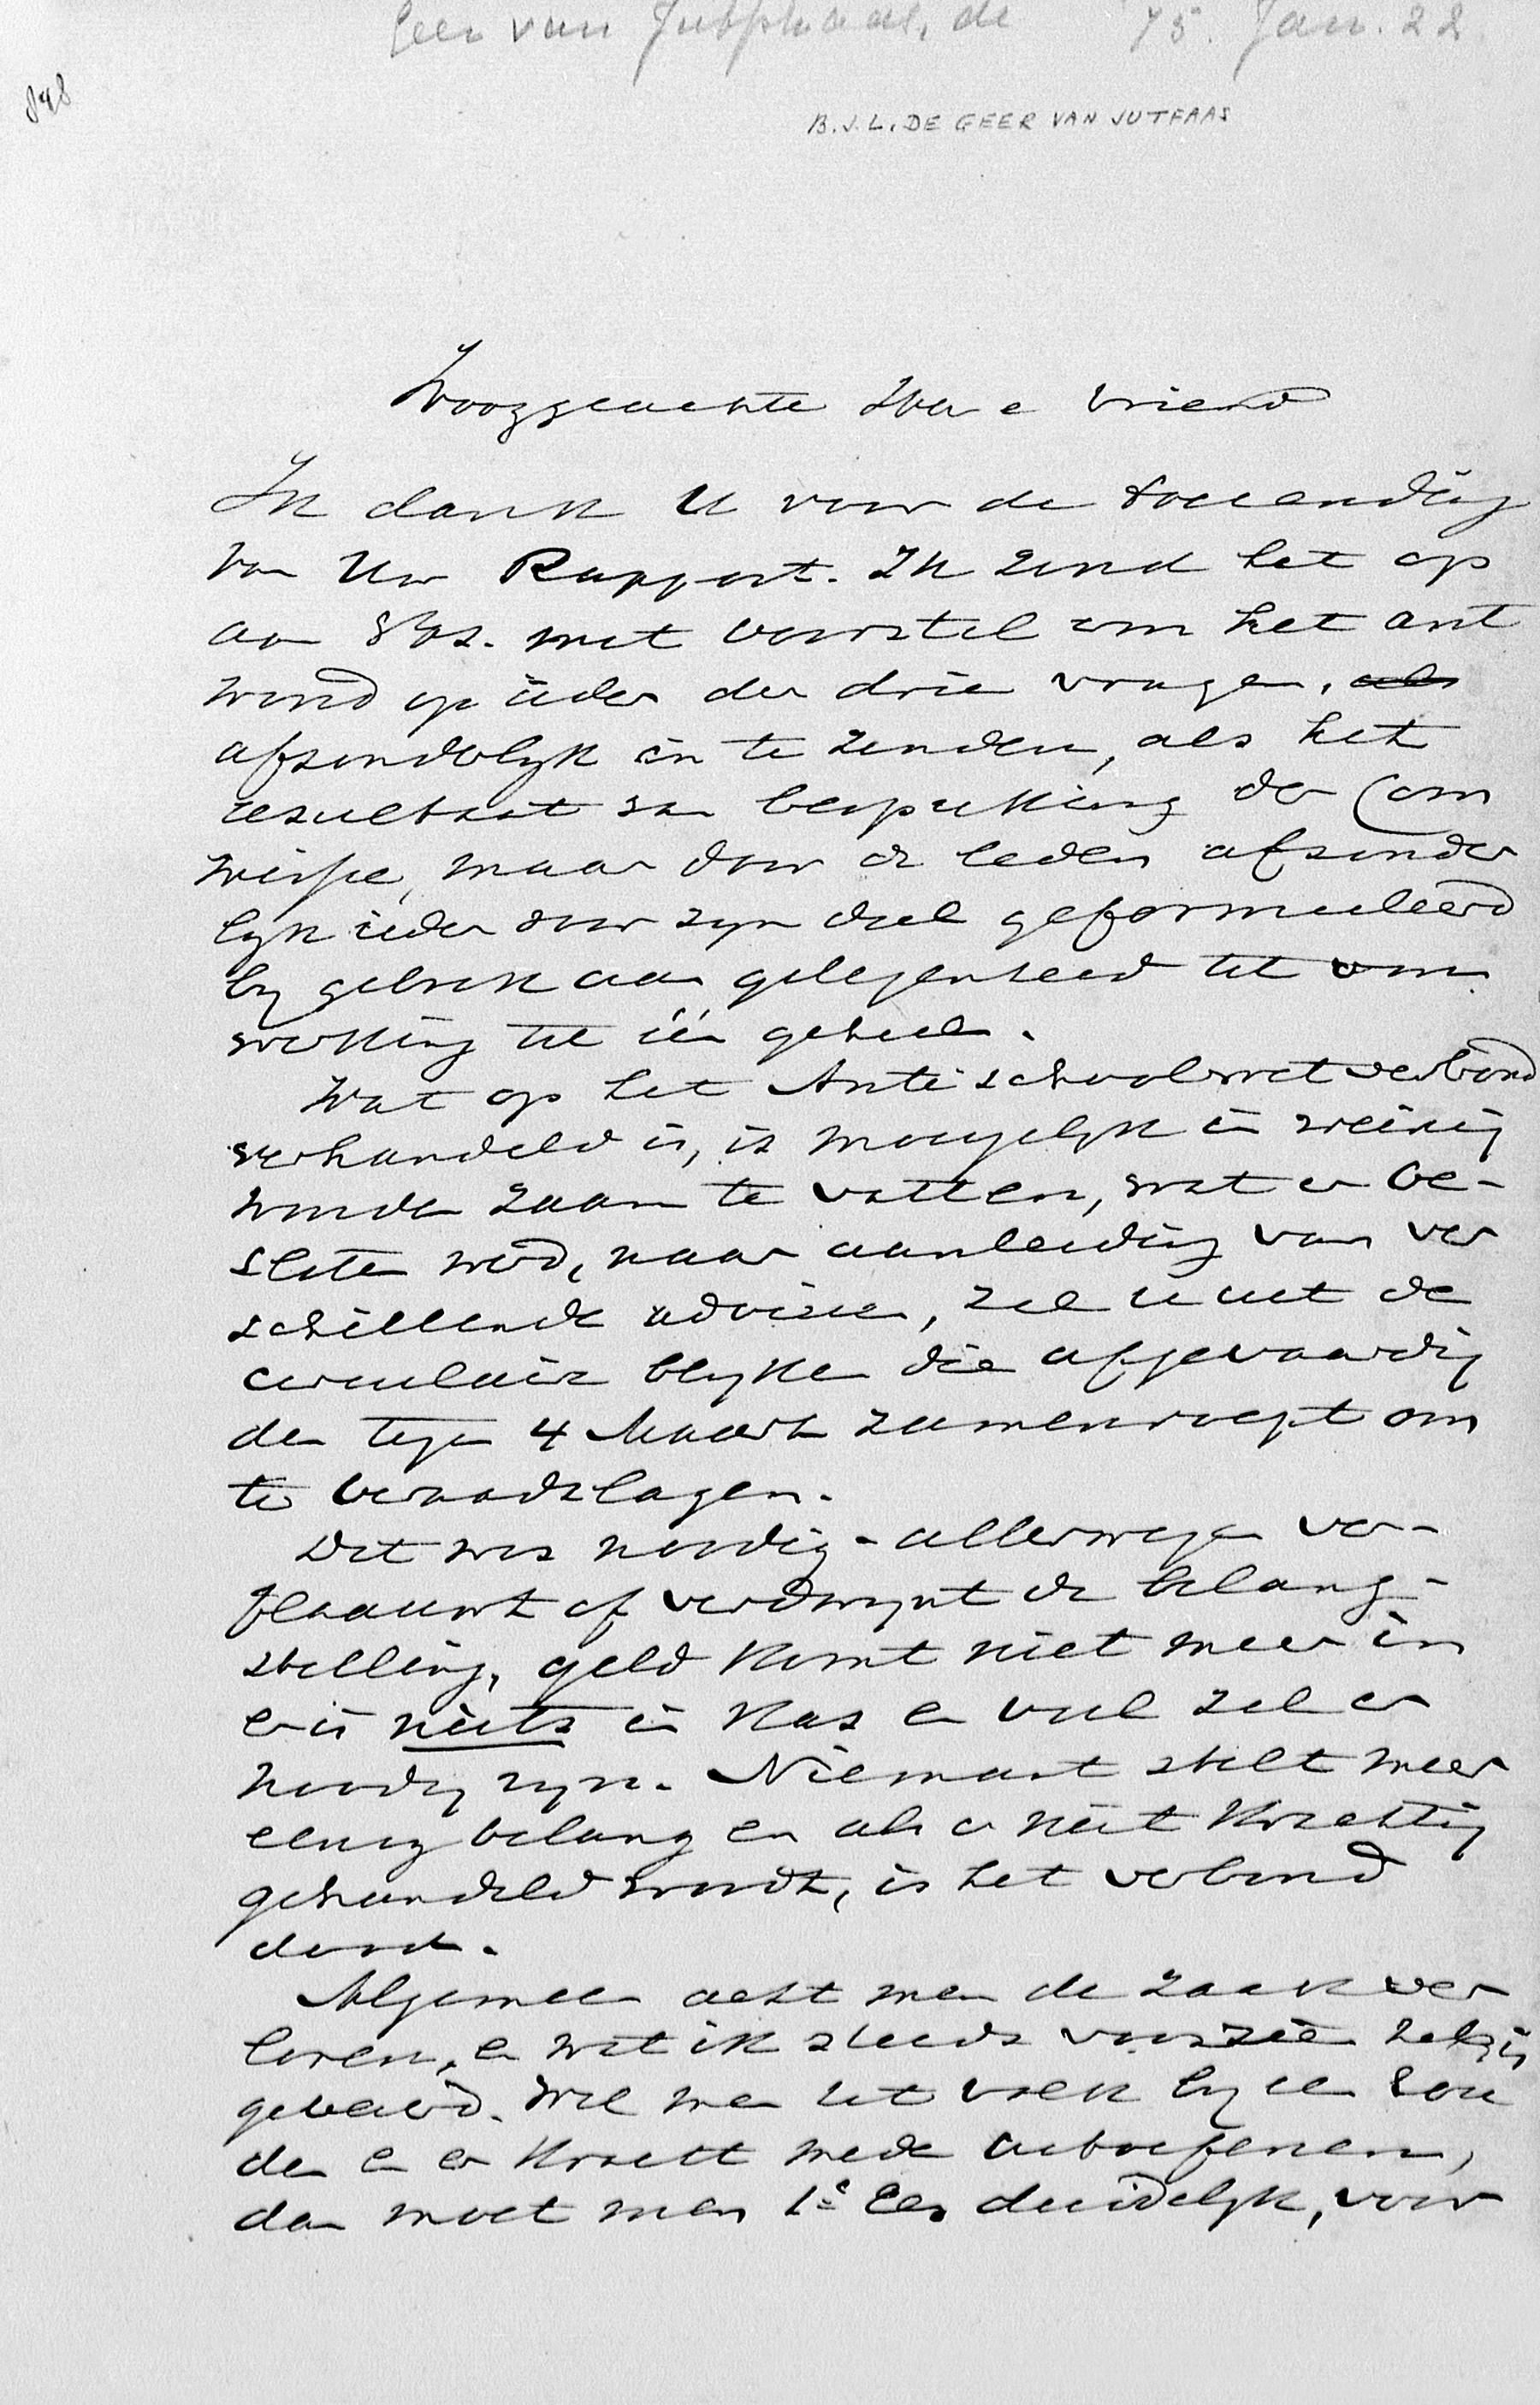 Geer van Jutphaas, de '75. Jan. 22
848
B.J.L. DE GEER VAN JUTFAAS
Hooggeachte Heer e Vriend
Ik dank U voor de toezending
van Uw Rapport. Ik zond het op
aan met voorstel om het ant
woord op ieder der drie vragen, als
afzonderlyk in te zenden, als het
resultaat van bespreking der Com
missie, maar door de leden afzonder
lyk ieder voor zyn deel geformuleerd
by gebrek aan gelegenheid tot om
werking tot één geheel.
Wat op het Antischoolwetverbond
verhandeld is, is moeyelyk in weinig
woorden zaam te vatten, wat er be-
sloten werd, naar aanleiding van ver
schillende adviezen, zal U uit de
circulaire blyken die afgevaardig
den tegen 4 Maart zamenroept om
te beraadslagen.
Dit was noodig - allerwege ver-
flaauwt of verdwynt de belang-
stelling, geld komt niet meer in
er is niets in kas en veel zal er
noodig zyn. Niemant stelt meer
eenig belang en als er niet krachtig
gehandeld wordt, is het verbond
dood.
Algemeen acht men de zaak ver
loren, en wat ik steeds voorzien heb is
gebeurd. Wil men het volk by een hou
den en er kracht mede uitoefenen,
dan moet men 1e Een duidelyk, voor